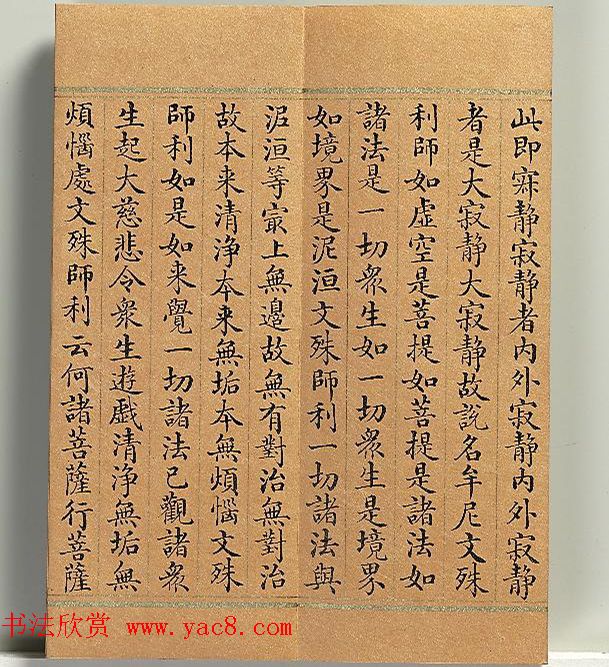 此即寂静寂静者内外寂静内外寂静
者是大寂静大寂静故説名牟尼文殊
利師如虚空是菩提如菩提是諸法如
諸法是一切衆生如一切衆生是境界
如境界是泥洹文殊師利一切諸法與
泥洹等冣上無邊故無有對治無對治
故本来清浄本来無垢本無煩惱文殊
師利如是如来覺一切諸法已觀諸衆
生起大慈悲令衆生遊戯清浄無垢無
煩惱處文殊師利云何諸菩薩行菩薩
书法欣赏 www.yac8.com